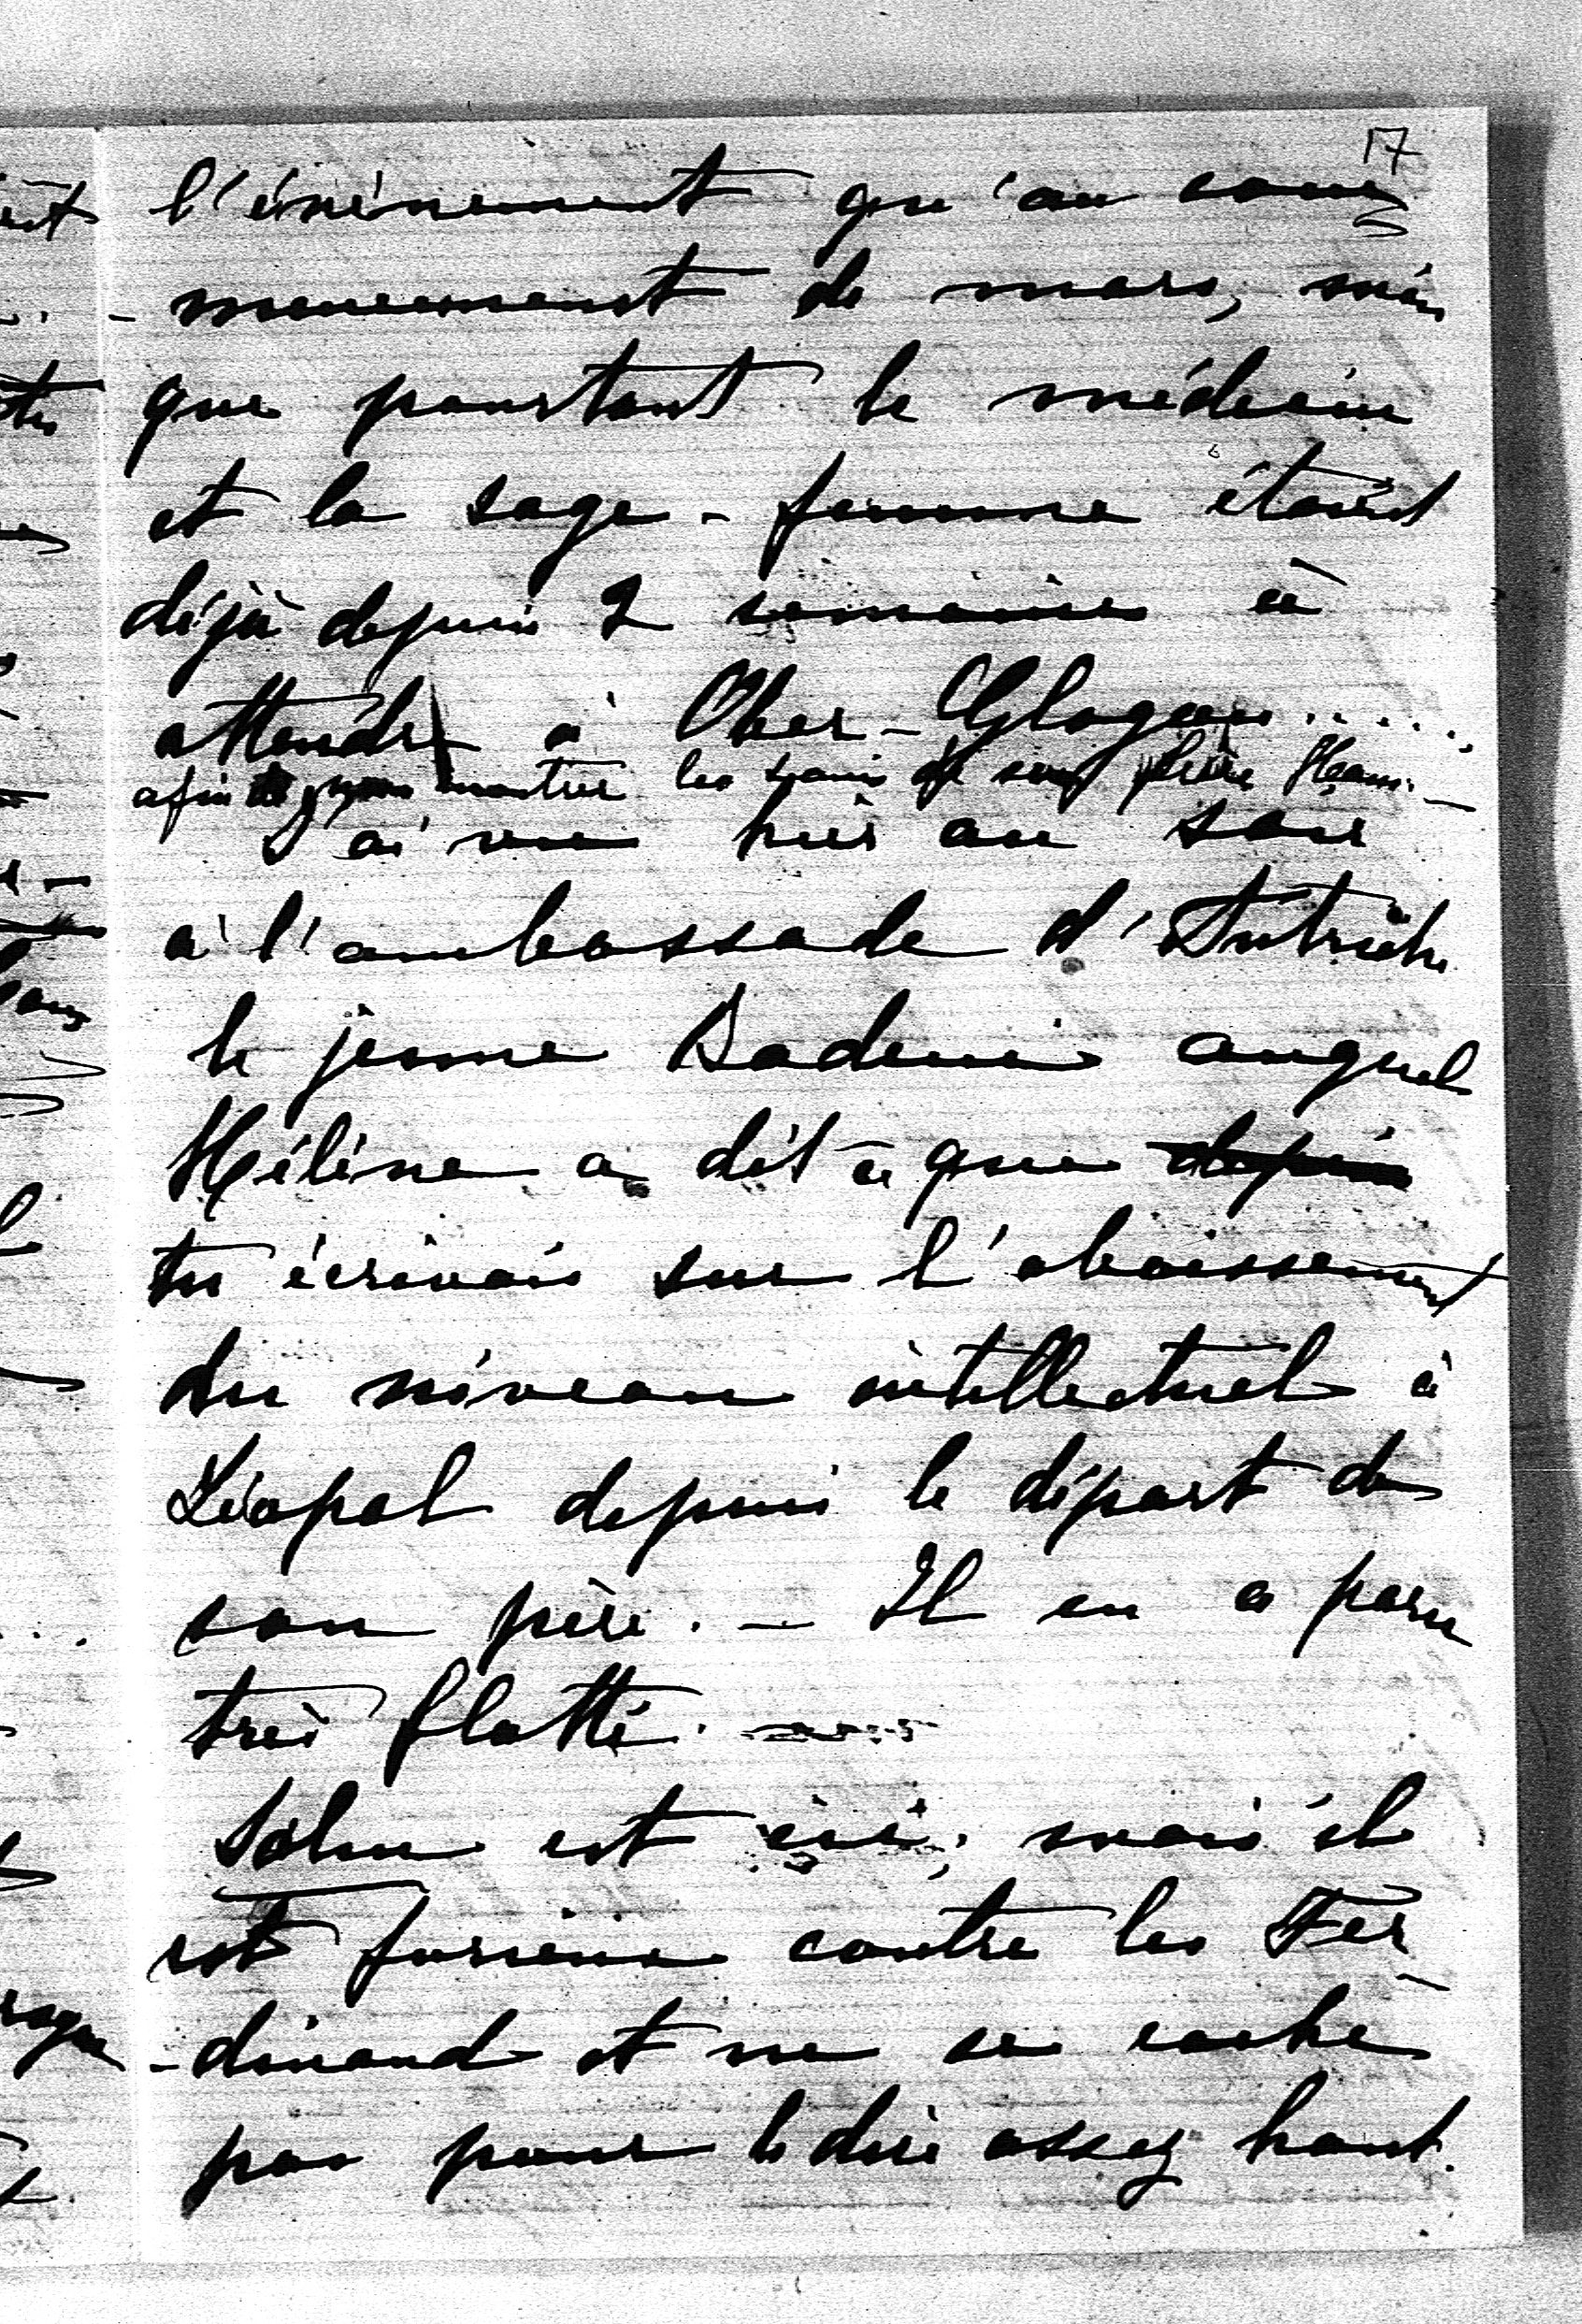 17
l'événement qu'au com
-mencement de mars, mais
que pourtant le médecin
et la sage-femme étaient
déjà depuis 2 semaines à
attendre à Ober-Glogau.....
afin de montrer les de son frère Hans.-
J'ai vu hier au soir
à l'ambassade d'Autriche
le jeune Badeni auquel
Hélène a dit ce que depuis
tu écrivais sur l'abaissement
du niveau intellectuel à
Léopol depuis le départ de
son père. - Il en a paru
très flatté.
Solms est ici, mais il
est furieux contre les Fer
-dinand et ne se cache
pas pour le dire assez haut.